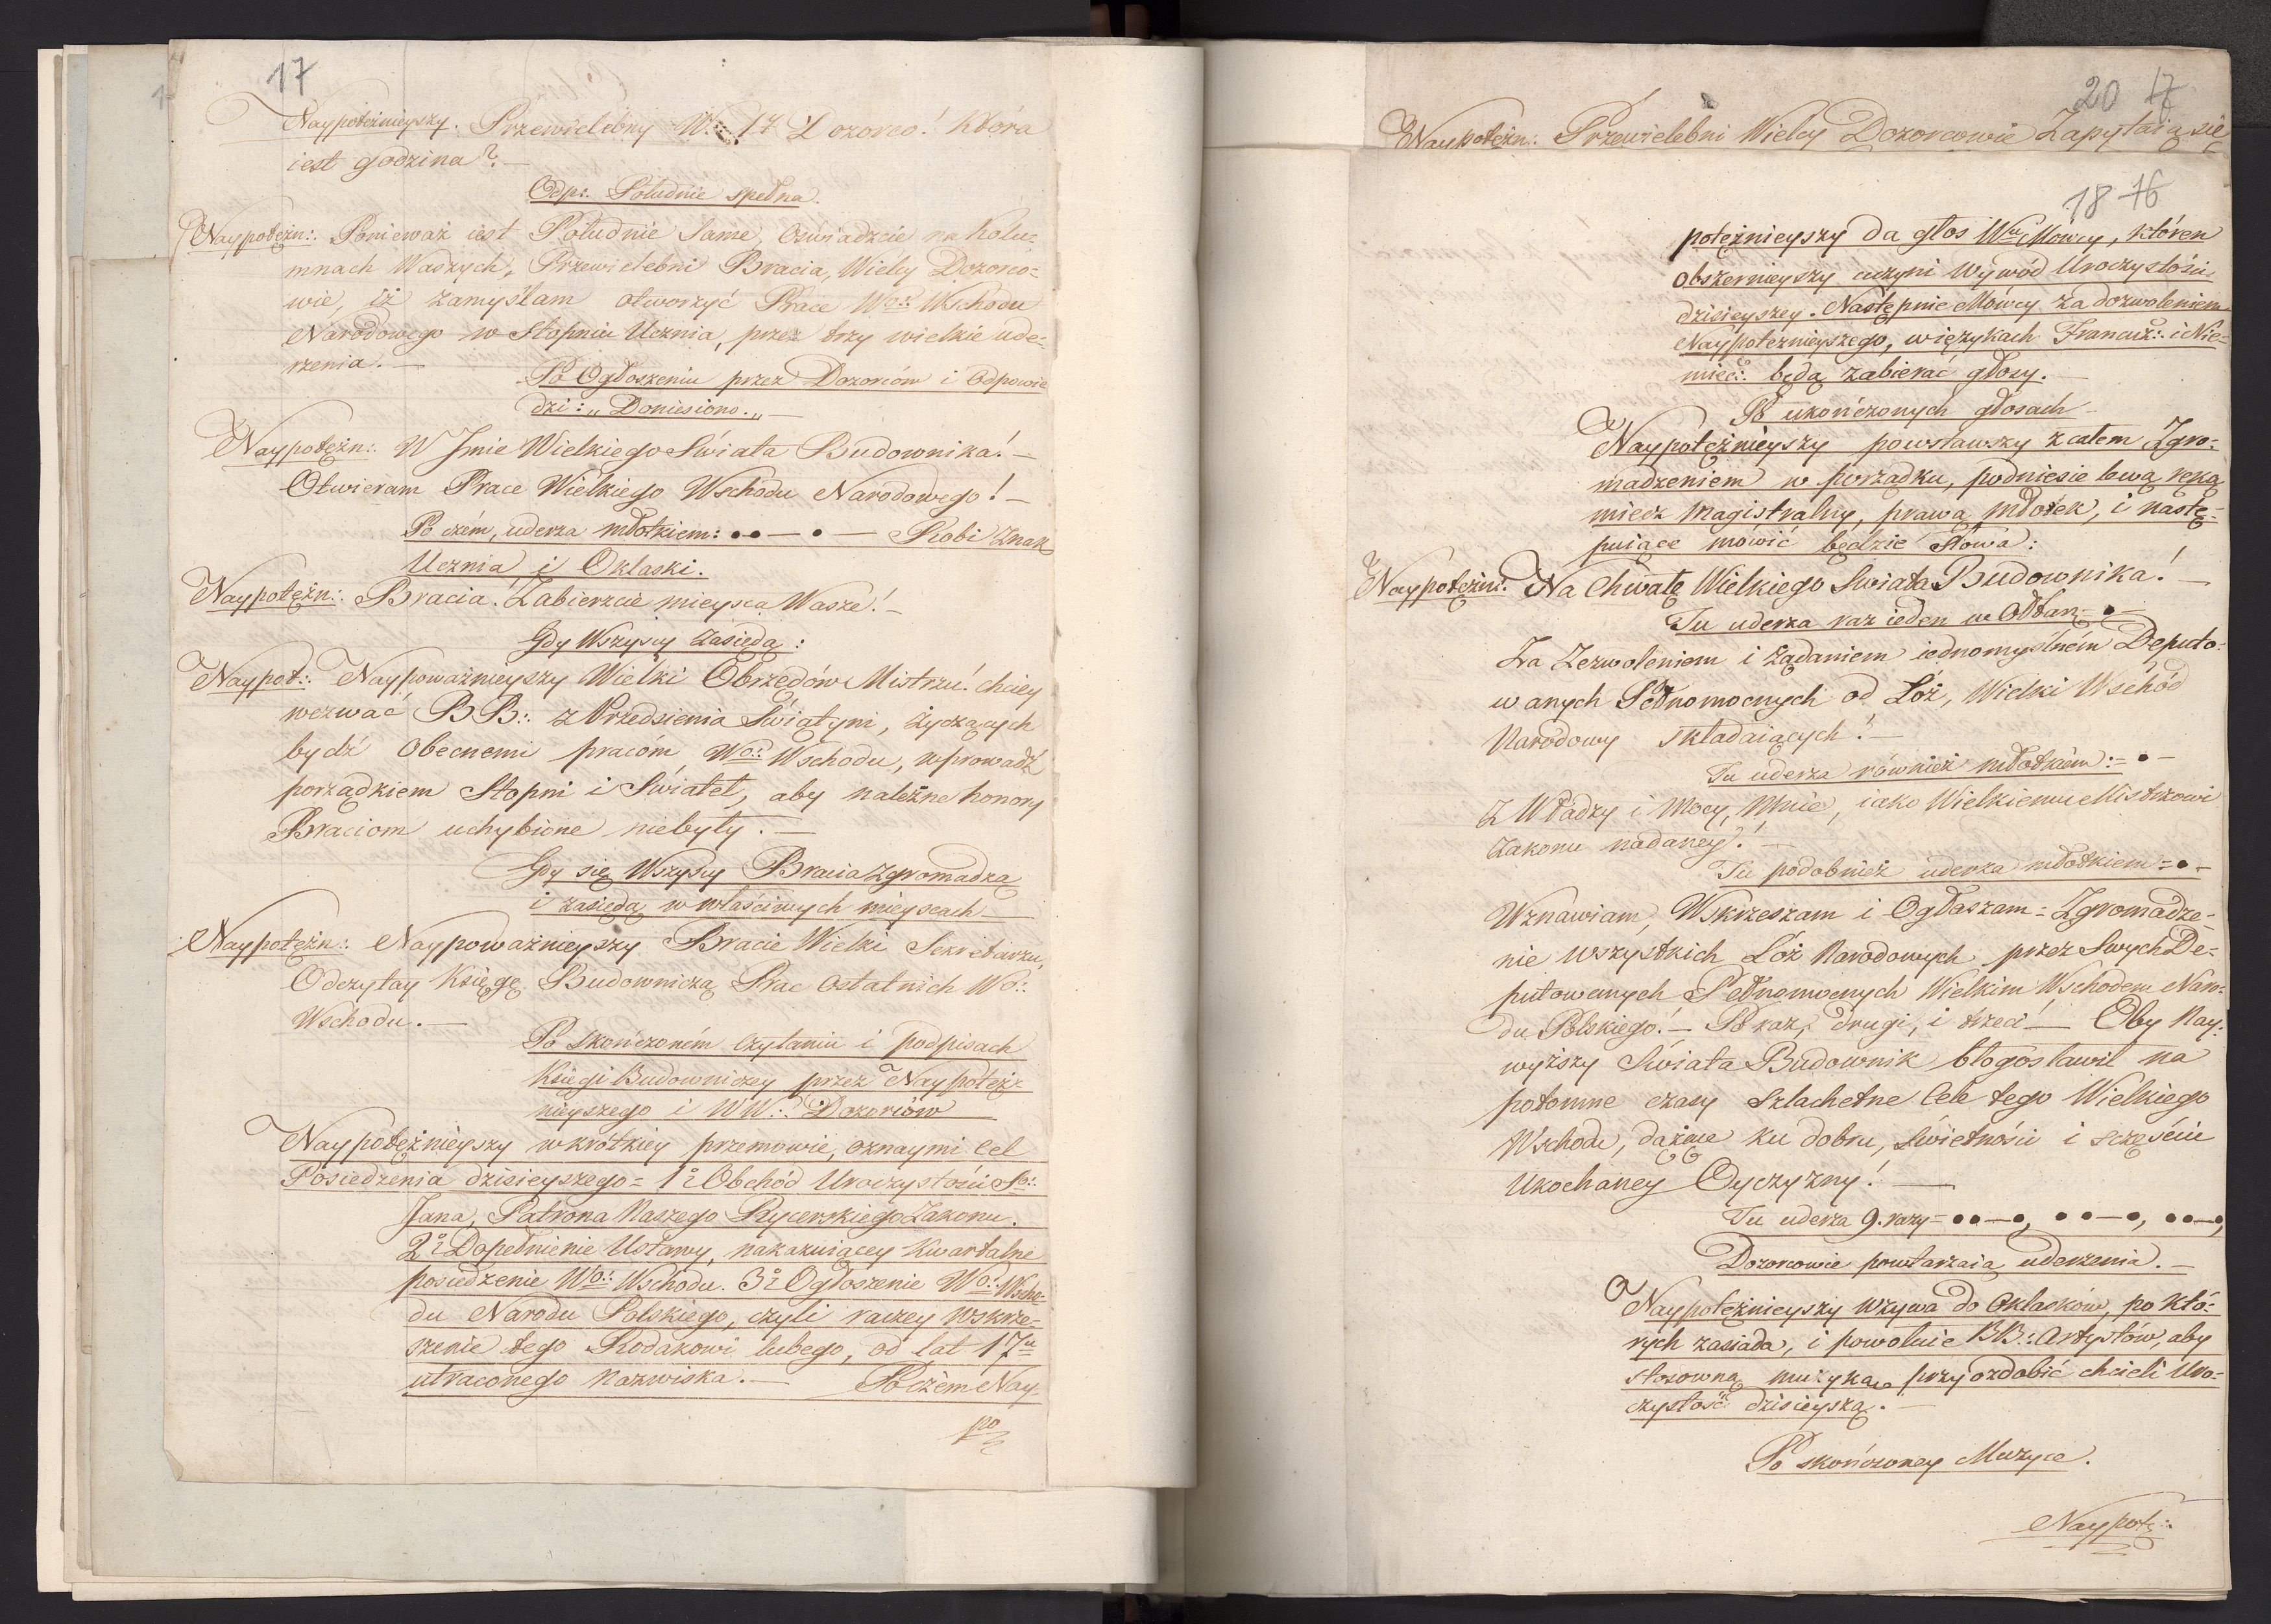 17
Naypotężnieyszy. Przewielebny W.·. 1y Dozorco! Która
iest godzina? —
Odp:. Południe spełna.
Naypotężn:. Ponieważ iest Południe Same, Oświadzcie na Kolu=
mnach Waszych, Przewielebni Bracia, Wielcy Dozorco=
wie, iż zamyślam otworzyć Prace Wgo:. Wschodu
Narodowego w Stopniu Ucznia, przez trzy wielkie ude=
rzenia. —
Po Ogłoszeniu przez Dozorców i Odpowie
dzi: „Doniesiono.„ —
Naypotężn:. W Jmie Wielkiego Świata Budownika! —
Otwieram Prace Wielkiego Wschodu Narodowego! —
Po czém, uderza młotkiem: ●● — ● — Robi Znak
Ucznia i Oklaski.
Naypotężn:. Bracia! Zabierzcie mieysca Wasze! —
Gdy Wszyscy zasiędą:
Naypot:. Naypoważnieyszy Wielki Obrzędów Mistrzu! chciey
wezwać BB:. z Przedsienia Świątyni, życzących
bydź Obecnemi pracóm Wgo:. Wschodu, wprowadź
porządkiem Stopni i Świateł, aby należne honory
Braciom uchybione niebyły. —
Gdy się Wszyscy Bracia zgromadzą
i zasiędą w właściwych mieyscach —
Naypotężn:. Naypoważnieyszy Bracie Wielki Sekretarzu,
Odczytay Księgę Budowniczą Prac Ostatnich Wgo:.
Wschodu. —
Po skończoném czytaniu i podpisach
Księgi Budowniczey przez Naypotęż=
nieyszego i WW:. Dozorców
Naypotężnieyszy w krótkiey przemowie, oznaymi Cel
Posiedzenia dzisieyszego = 1o: Obchód Uroczystości So:.
Jana, Patrona Naszego Rycerskiego Zakonu.
2o: Dopełnienie Ustawy, nakazuiącey Kwartalne
posiedzenie Wgo:. Wschodu. 3o: Ogłoszenie Wgo:. Wscho=
du Narodu Polskiego, czyli raczey wskrze=
szenie tego Rodakowi lubego, od lat 17u
utraconego Nazwiska. — Poczém Nay=
po
20 17
Naypotężn:. Przewielebni Wielcy Dozorcowie Zapytaią się
18 16
potężnieyszy da głos Wmu Mówcy, któren
obszernieyszy uczyni Wywód Uroczystości
dzisieyszey. Następnie Mówcy za dozwoleniem
Naypotężnieyszego, w ięzykach Francuz:. i Nie=
miec:. będą zabierać głosy. —
Po ukończonych głosach —
Naypotężnieyszy powstawszy z całem Zgro=
madzeniem w porządku, podniesie lewą ręką
miecz Magistralny, prawą młotek, i nastę=
puiące mówić będzie Słowa:
Naypotężn:. Na Chwałę Wielkiego Swiata Budownika! —
Tu uderza raz ieden w Ołtarz = ● —
Za Zezwoleniem i żądaniem iednomyślném Deputo=
wanych Pełnomocnych od Lóż, Wielki Wschód
Narodowy składaiących! —
Tu uderza również młotkiem: = ● —
Z Władzy i Mocy, Mnie, iako Wielkiemu Mistrzowi
Zakonu nadaney! —
Tu podobnież uderza młotkiem = ● —
Wznawiam, Wskrzeszam i Ogłaszam = Zgromadze=
nie wszystkich Lóż Narodowych przez Swych De=
putowanych Pełnomocnych Wielkim Wschodem Naro=
du Polskiego! — Po raz, drugi, i trzeci! — Oby Nay=
wyższy Świata Budownik błogosławił na
potomne czasy Szlachetne Cele tego Wielkiego
Wschodu, dążące ku dobru, świetności i sczęściu
Ukochaney Oyczyzny! —
Tu uderza 9. razy = ●●—●, ●●—●, ●●—●,
Dozorcowie powtarzaią uderzenia. —
Naypotężnieyszy wzywa do Oklasków, po któ=
rych zasiada, i powołuie BB:. Artystów, aby
stosowną muzyką przyozdobić chcieli Uro=
czystość dzisieyszą. —
Po skończoney Muzyce.
Naypotę:.